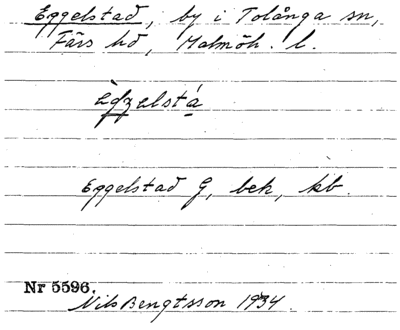 Eggelstad, by i Tolånga sn,
Färs hd, Malmöh. l.
Eggelstad G, bek, kb.
Nr 5596.
Nils Bengtsson 1934.